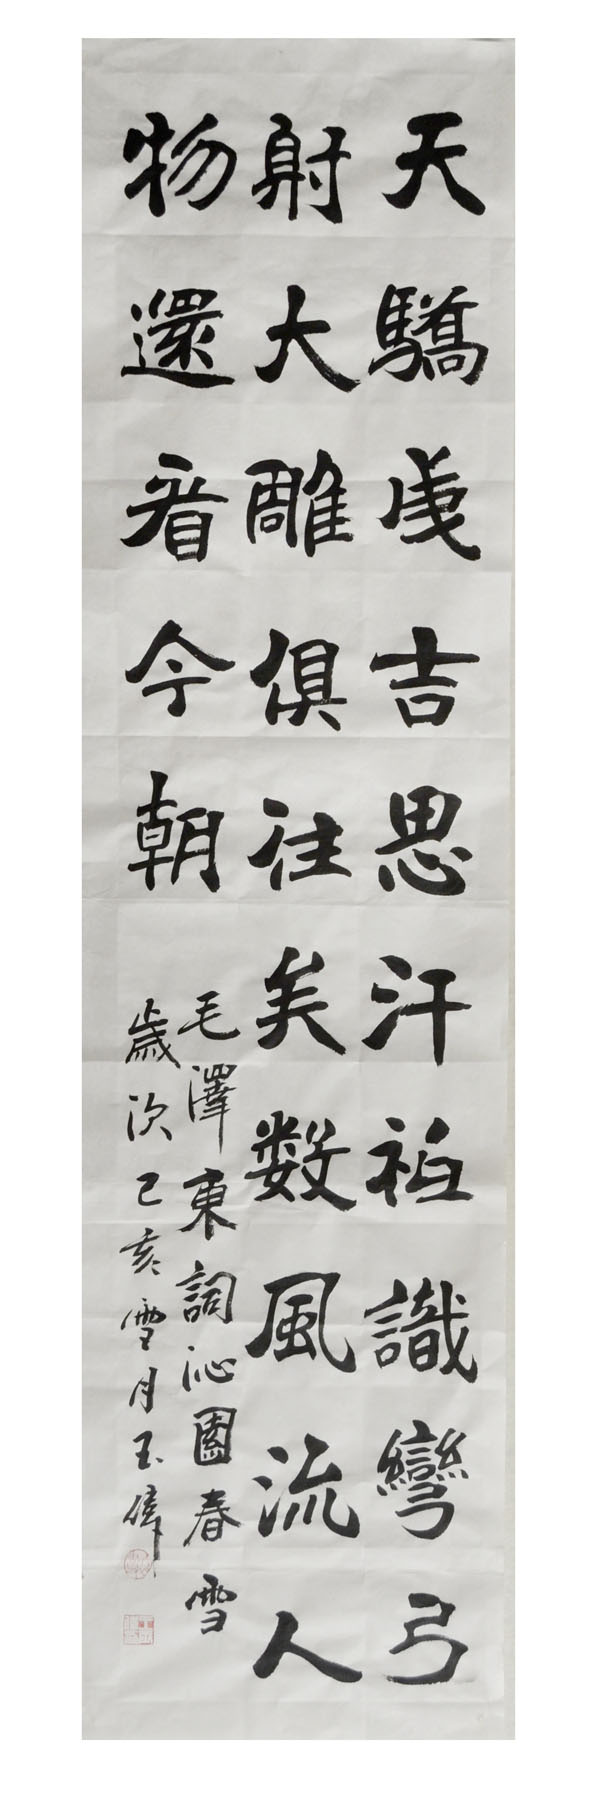 天驕成吉思汗祗識彎弓
射大雕俱往矣数風流人
物還看今朝
毛澤東詞沁園春雪
歲次己亥雪月玉偉